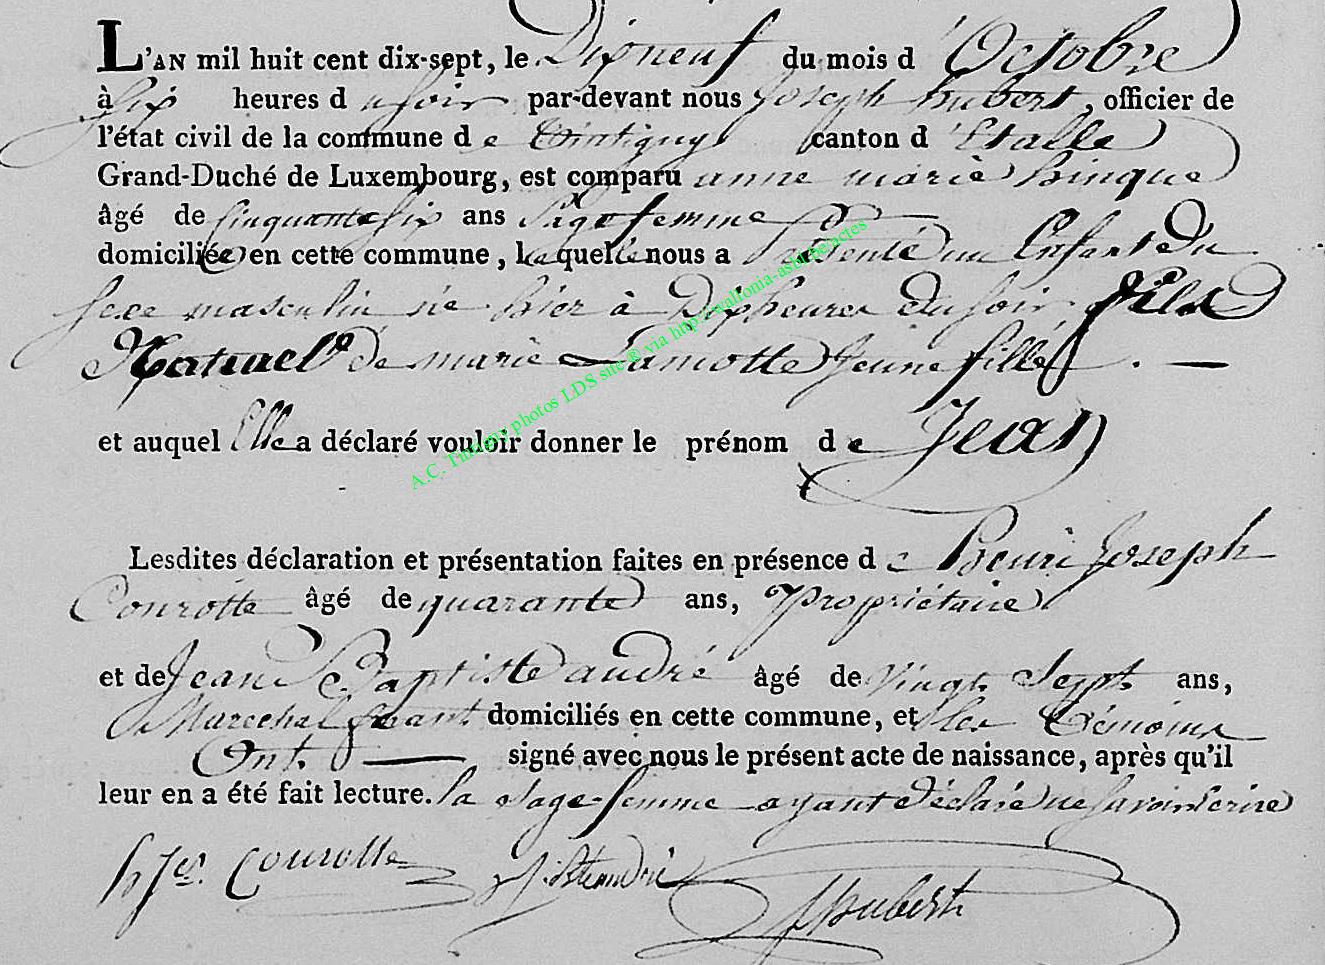 L'AN mil huit cent dix-sept, le Dixneuf du mois d'Octobre
à Six heures du soir par-devant nous Joseph hubert, officier de
l'état civil de la commune de Tintigny canton d'Etalle
Grand-Duché de Luxembourg, est comparu anne marie hinque
âgé de Cinquante six ans Sage femme
domiciliée en cette commune, laquelle nous a présenté un Enfant du
sexe masculin né hier à Dix heures du soir fils
Naturel de marie Lamotte jeune fille. —
et auquel Elle a déclaré vouloir donner le prénom de Jean
Lesdites déclaration et présentation faites en présence de henri Joseph
Courotte âgé de quarante ans, Propriétaire
et de Jean Baptiste andré âgé de Vingt Sept ans,
Marechal ferant domiciliés en cette commune, et les témoins
Ont — signé avec nous le présent acte de naissance, après qu'il
leur en a été fait lecture. la sage-femme ayant déclaré ne savoir Ecrire
h Js. Courotte J. Bte andré J hubert
A.C. Tintigny photos LDS site ® via http://wallonia-asbl.be/actes